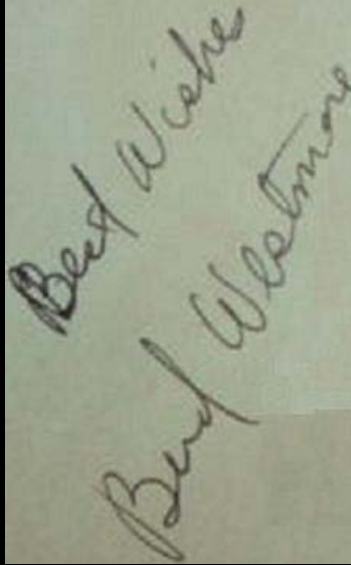 Best Wishes
Bud Westmore